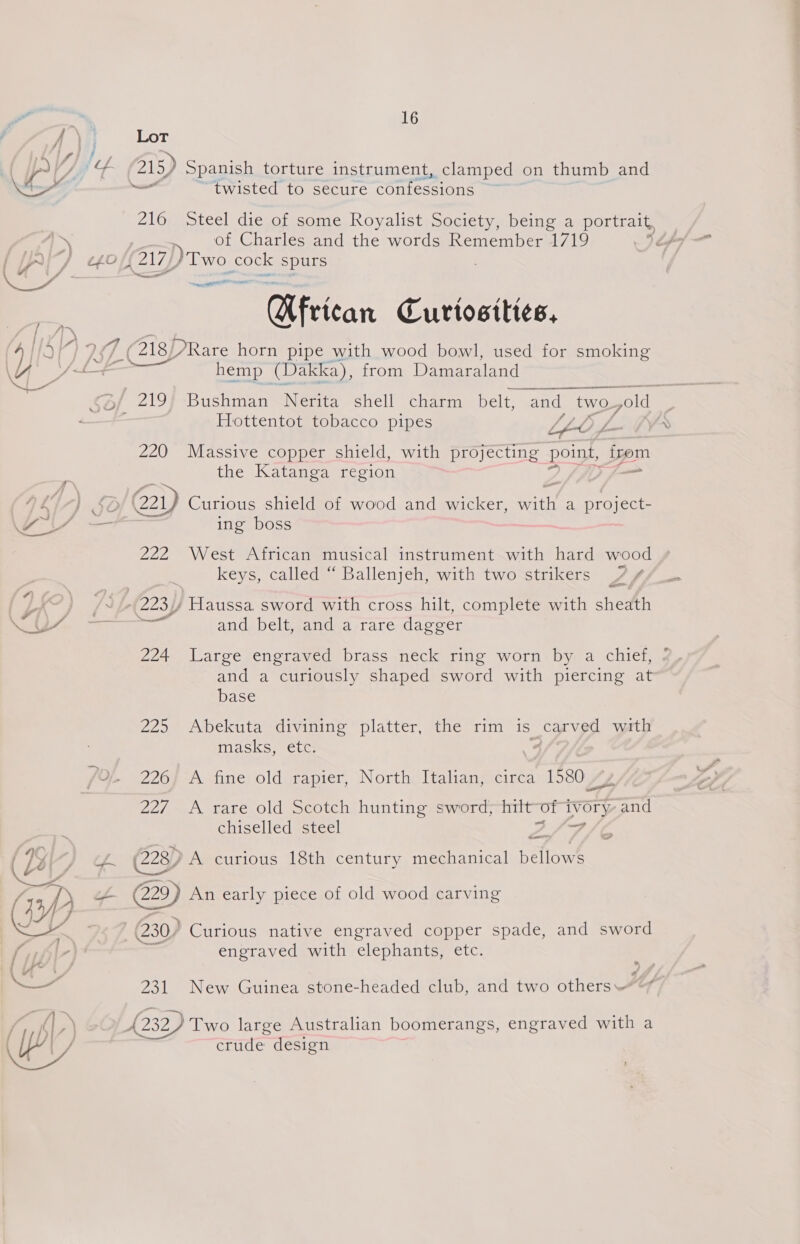 16
Lot
215 Spanish torture instrument, clamped on thumb and
twisted to secure confessions
216 Steel die of some Royalist Society, being a portrait
of Charles and the words Remember 1719
217 Two cock spurs
African Curiosities.
218 Rare horn pipe with wood bowl, used for smoking
hemp (Dakka), from Damaraland
219 Bushman Nerita shell charm belt, and two old
Hottentot tobacco pipes
220 Massive copper shield, with projecting point, from
the Katanga region
221 Curious shield of wood and wicker, with a project-
ing boss
222 West African musical instrument with hard wood
keys, called “ Ballenjeh, with two strikers
223 Haussa sword with cross hilt, complete with sheath
and belt, and a rare dagger
224 Large engraved brass neck ring worn by a chief,
and a curiously shaped sword with piercing at
base
225 Abekuta divining platter, the rim is carved with
masks, etc.
226 A fine old rapier, North Italian, circa 1580
227 A rare old Scotch hunting sword, hilt of ivory and
chiselled steel
228 A curious 18th century mechanical bellows
229 An early piece of old wood carving
230 Curious native engraved copper spade, and sword
engraved with elephants, etc.
231 New Guinea stone-headed club, and two others
232 Two large Australian boomerangs, engraved with a
crude design